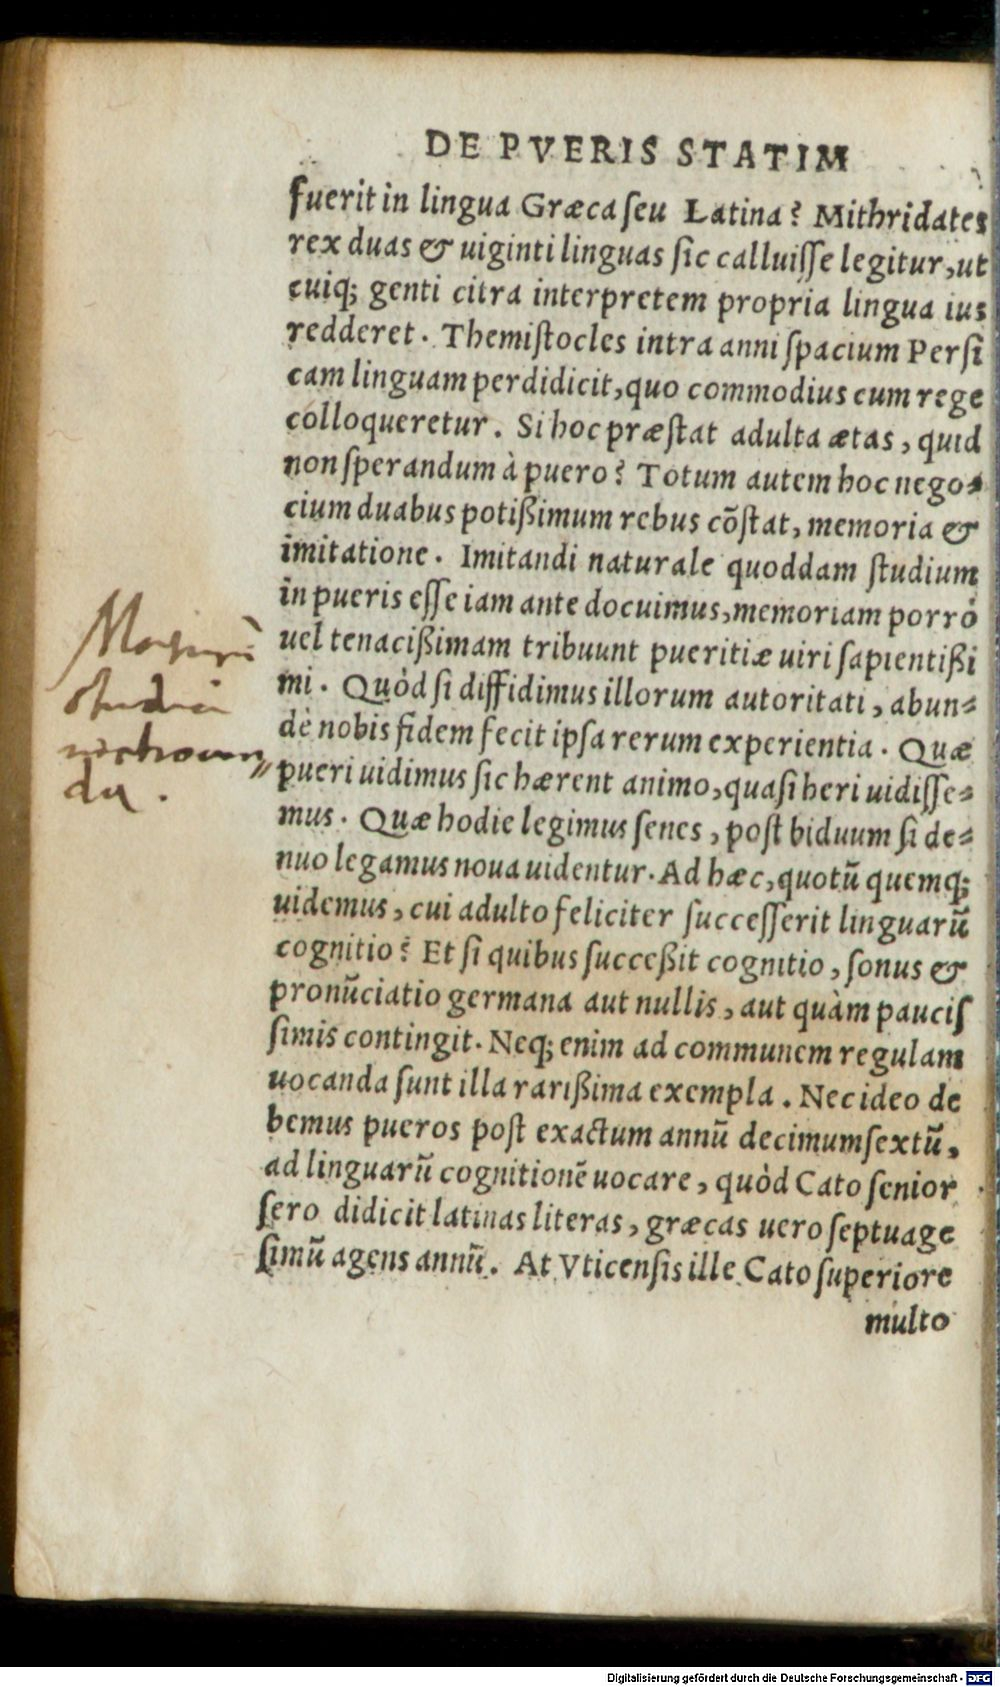 DE PVERIS STATIM
fuerit in lingua Græca ſeu Latina? Mithridates
rex duas & uiginti linguas ſic calluiſſe legitur, ut
cuiq; genti citra interpretem propria lingua ius
redderet. Themiſtocles intra anni ſpacium Perſi
cam linguam perdidicit, quo commodius cum rege
colloqueretur. Si hoc præſtat adulta ætas, quid
non ſperandum à puero? Totum autem hoc nego⸗
cium duabus potißimum rebus cõſtat, memoria &
imitatione. Imitandi naturale quoddam ſtudium
in pueris eſſe iam ante docuimus, memoriam porrò
uel tenacißimam tribuunt pueritiæ uiri ſapientißi
mi. Quòd ſi diffidimus illorum autoritati, abun⸗
dè nobis fidem fecit ipſa rerum experientia. Quæ
pueri uidimus ſic hærent animo, quaſi heri uidiſſe⸗
mus. Quæ hodie legimus ſenes, poſt biduum ſi de⸗
nuo legamus noua uidentur. Ad hæc, quotũ quemq;
uidemus, cui adulto feliciter ſucceſſerit linguarũ
cognitio? Et ſi quibus ſucceßit cognitio, ſonus &
pronũciatio germana aut nullis, aut quàm pauciſ
ſimis contingit. Neq; enim ad communem regulam
uocanda ſunt illa rarißima exempla. Nec ideo de
bemus pueros poſt exactum annũ decimumſextũ,
ad linguarũ cognitionẽ uocare, quòd Cato ſenior
ſero didicit latinas literas, græcas uero ſeptuage
ſimũ agens annũ. At Vticenſis ille Cato ſuperiore
multo
Digitalisierung gefördert durch die Deutsche Forschungsgemeinschaft - DFG